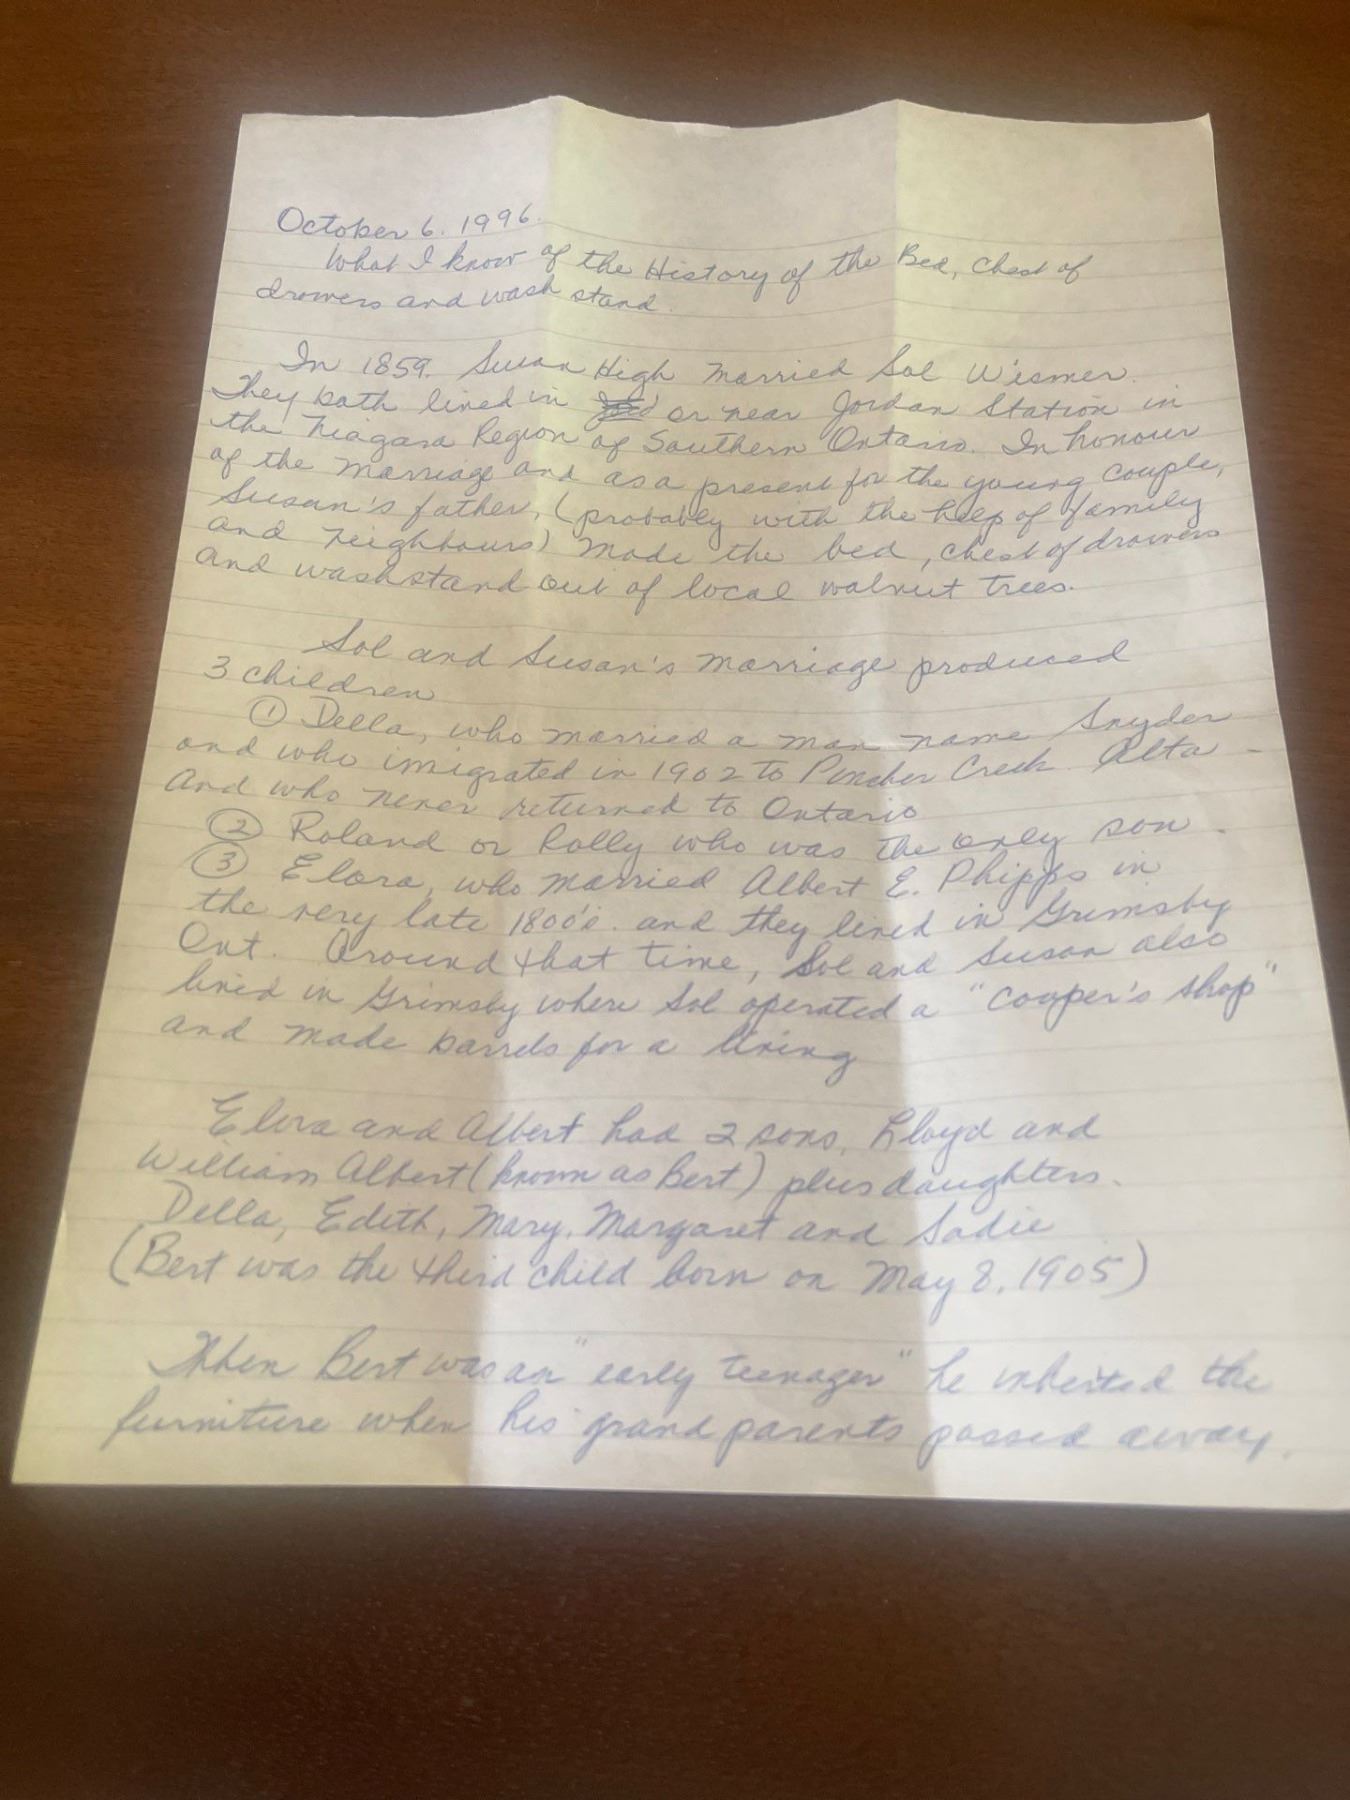 October 6. 1996.
What I know of the History of the Bed, chest of
drawers and wash stand.
In 1859. Susan High married Sol Wismer.
They both lived in or near Jordan Station in
the Niagara Region of Southern Ontario. In honour
of the marriage and as a present for the young couple,
Susan's father, (probably with the help of family
and neighbours) made the bed, chest of drawers
and washstand out of local walnut trees.
Sol and Susan's marriage produced
3 children
① Della, who married a man name Snyder
and who imigrated in 1902 to Pincher Creek Alta -
And who never returned to Ontario
② Roland or Rolly who was the only son.
③ Elora, who married Albert E. Phipps in
the very late 1800's. and they lived in Grimsby
Ont. Around that time, Sol and Susan also
lived in Grimsby where Sol operated a "cooper's shop"
and made barrels for a living
Elora and Albert had 2 sons, Lloyd and
William Albert (known as Bert) plus daughters.
Della, Edith, Mary, Margaret and Sadie
(Bert was the third child born on May 8, 1905)
When Bert was an "early teenager" he inherited the
furniture when his grandparents passed away.